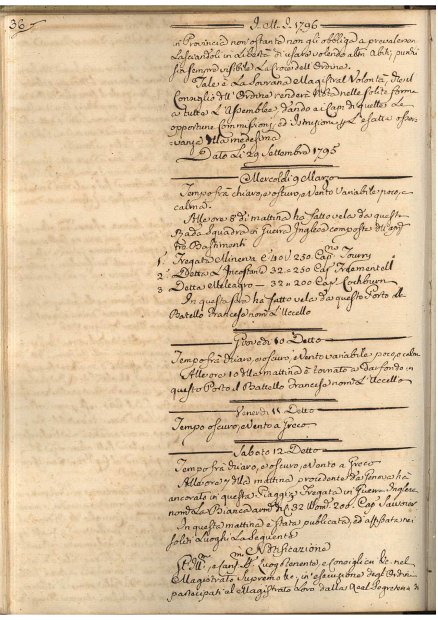 36
A. M. D. 1796
in Provincia non ostante non gli obbliga a prevalersen
lasciandoli in libertà di usare volendo altri Abiti, purchè
sia sempre visibile la Croce dell Ordine.
Tale è la Sovrana Magistral Volontà, ed il
Consiglio dell' Ordine renderà Nota nelle solite forme
a tutte l'Assemblee, dando a i Capi di quelle le
opportune Commissioni, ed Istruzioni p. l'esatta osser
vanza della medesima
Dato li 29 Settembre 1795
Mercoldì 9 Marzo
Tempo frà chiaro, e oscuro, e Vento variabile poco, e
calma.
Alle ore 8 di mattina ha fatto vela da questa
Rada Squadra in Guerra Inglese composta de
Bastimenti
1 Fregata Minerva C. 40 250 Cap.
2 Detta L'Incostante 32 = 250 Cap. Fridementell
3 Detta Meleagro — 32 = 200 Cap. Cockburn
In questa sera ha fatto vela da questo Porto il
Battello Francese nom. L'Uccello
Giovedì 10 Detto
Tempo frà chiaro, e oscuro, e Vento variabile poco, e calm
Alle ore 10 della mattina è tornato a Dar fondo in
questo Porto il Battello Francese nom. L'Uccello
Venerdì 11 Detto
Tempo oscuro, e Vento a Greco
Sabato 12 Detto
Tempo frà chiaro, e oscuro, e Vento a Greco
Alle ore 7 della mattina procedente da Genova hà
ancorato in questa Piaggia Fregata in Guerra Inglese
nom. La Bianca arm. C. 32 Uom. 200. Cap.
In questa mattina è stata publicata, ed affissata nei
soliti Luoghi la Seguente
Notificazione
Luogotenente, e Consiglieri nel
Magistrato Supremo &c. in esecuzione degl'Ordini
partecipati al Magistrato Loro dalla Real Segreteria di